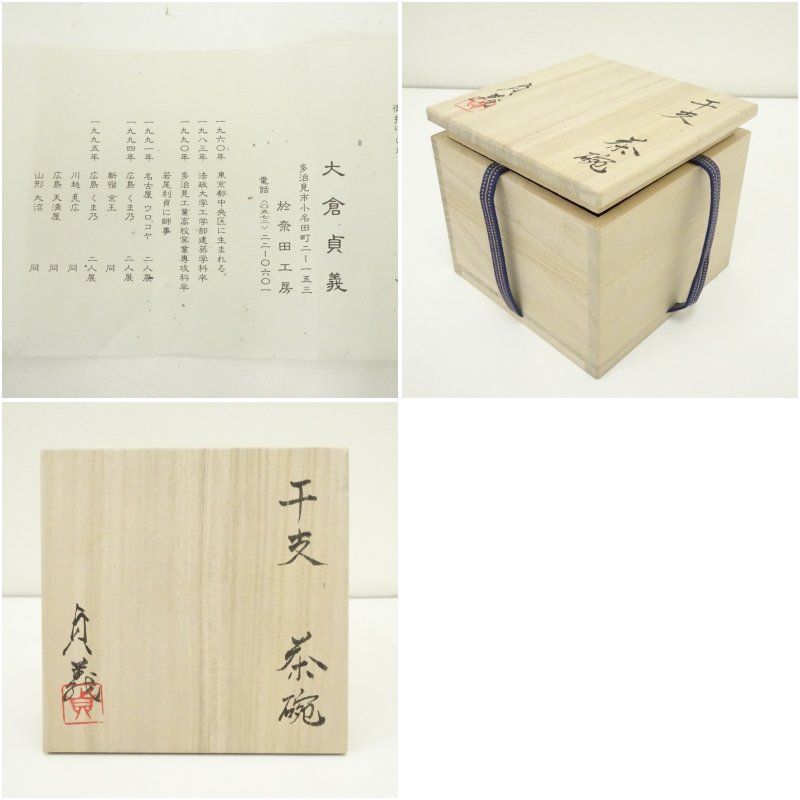 大倉貞義
多治見市小名田町二ー一五三
於奈田工房
電話〈〇五七二〉二二ー〇六〇一
一九六〇年 東京都中央区に生まれる。
一九八三年 法政大学工学部建築学科卒
一九九〇年 多治見工業高校窯業専攻科卒
若尾利貞に師事
一九九一年 名古屋 ウロコヤ 二人展
一九九四年 広島 くま乃 二人展
新宿 京王 同
一九九五年 広島 くま乃 二人展
川越 丸広 同
広島 天満屋 同
山形 大沼 同
干支 茶碗
貞義
干支 茶碗
貞義
貞